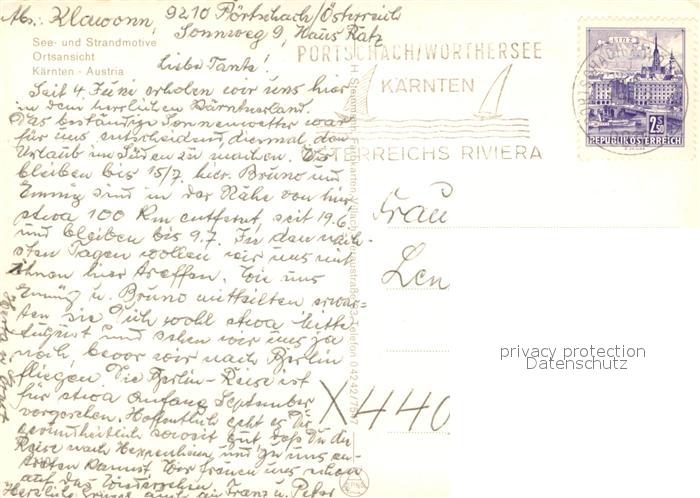 Abs.: Klawonn, 9210 Pörtschach/Österreich
Sonnweg 9, Haus Ratz
See- und Strandmotive
Ortsansicht
Kärnten · Austria
Liebe Tante!
Seit 4. Juni erholen wir uns hier
in dem herrlichen Kärntnerland.
Das beständige Sonnenwetter war
für uns entscheidend diesmal den
Urlaub im Süden zu machen. Wir
bleiben bis 15/7. hier. Bruno und
Emmy sind in der Nähe von hier
etwa 100 Km entfernt, seit 19.6.
und bleiben bis 9.7. In den näch-
sten Tagen wollen wir uns mit
ihnen hier treffen. Wie uns
Emmy u. Bruno mitteilten erwar-
ten sie Dich wohl etwa Mitte
August und sehen wir uns ja
noch, bevor wir nach Berlin
fliegen. Die Berlin-Reise ist
für etwa Anfang September
vorgesehen. Hoffentlich geht es Dir
gesundheitlich soweit gut, daß Du die
Reise nach Heppenheim und zu uns an-
treten kannst. Wir freuen uns schon
auf das Wiedersehen.
Herzliche Grüsse auch an Franz u. Peter
PÖRTSCHACH/WÖRTHERSEE
KÄRNTEN
ÖSTERREICHS RIVIERA
LINZ
2S50
REPUBLIK ÖSTERREICH
Telefon 04242/7597
Frau
Len
X 440
privacy protection
Datenschutz